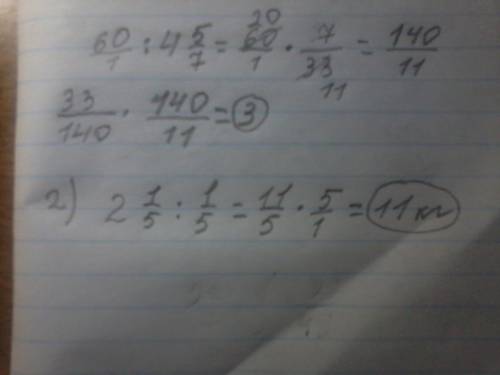 60/1 : 4 5/7 = 60/1 20 · 7/33 11 = 140/11
33/140 · 140/11 = 3
2) 2 1/5 : 1/5 = 11/5 · 5/1 = 11 кг